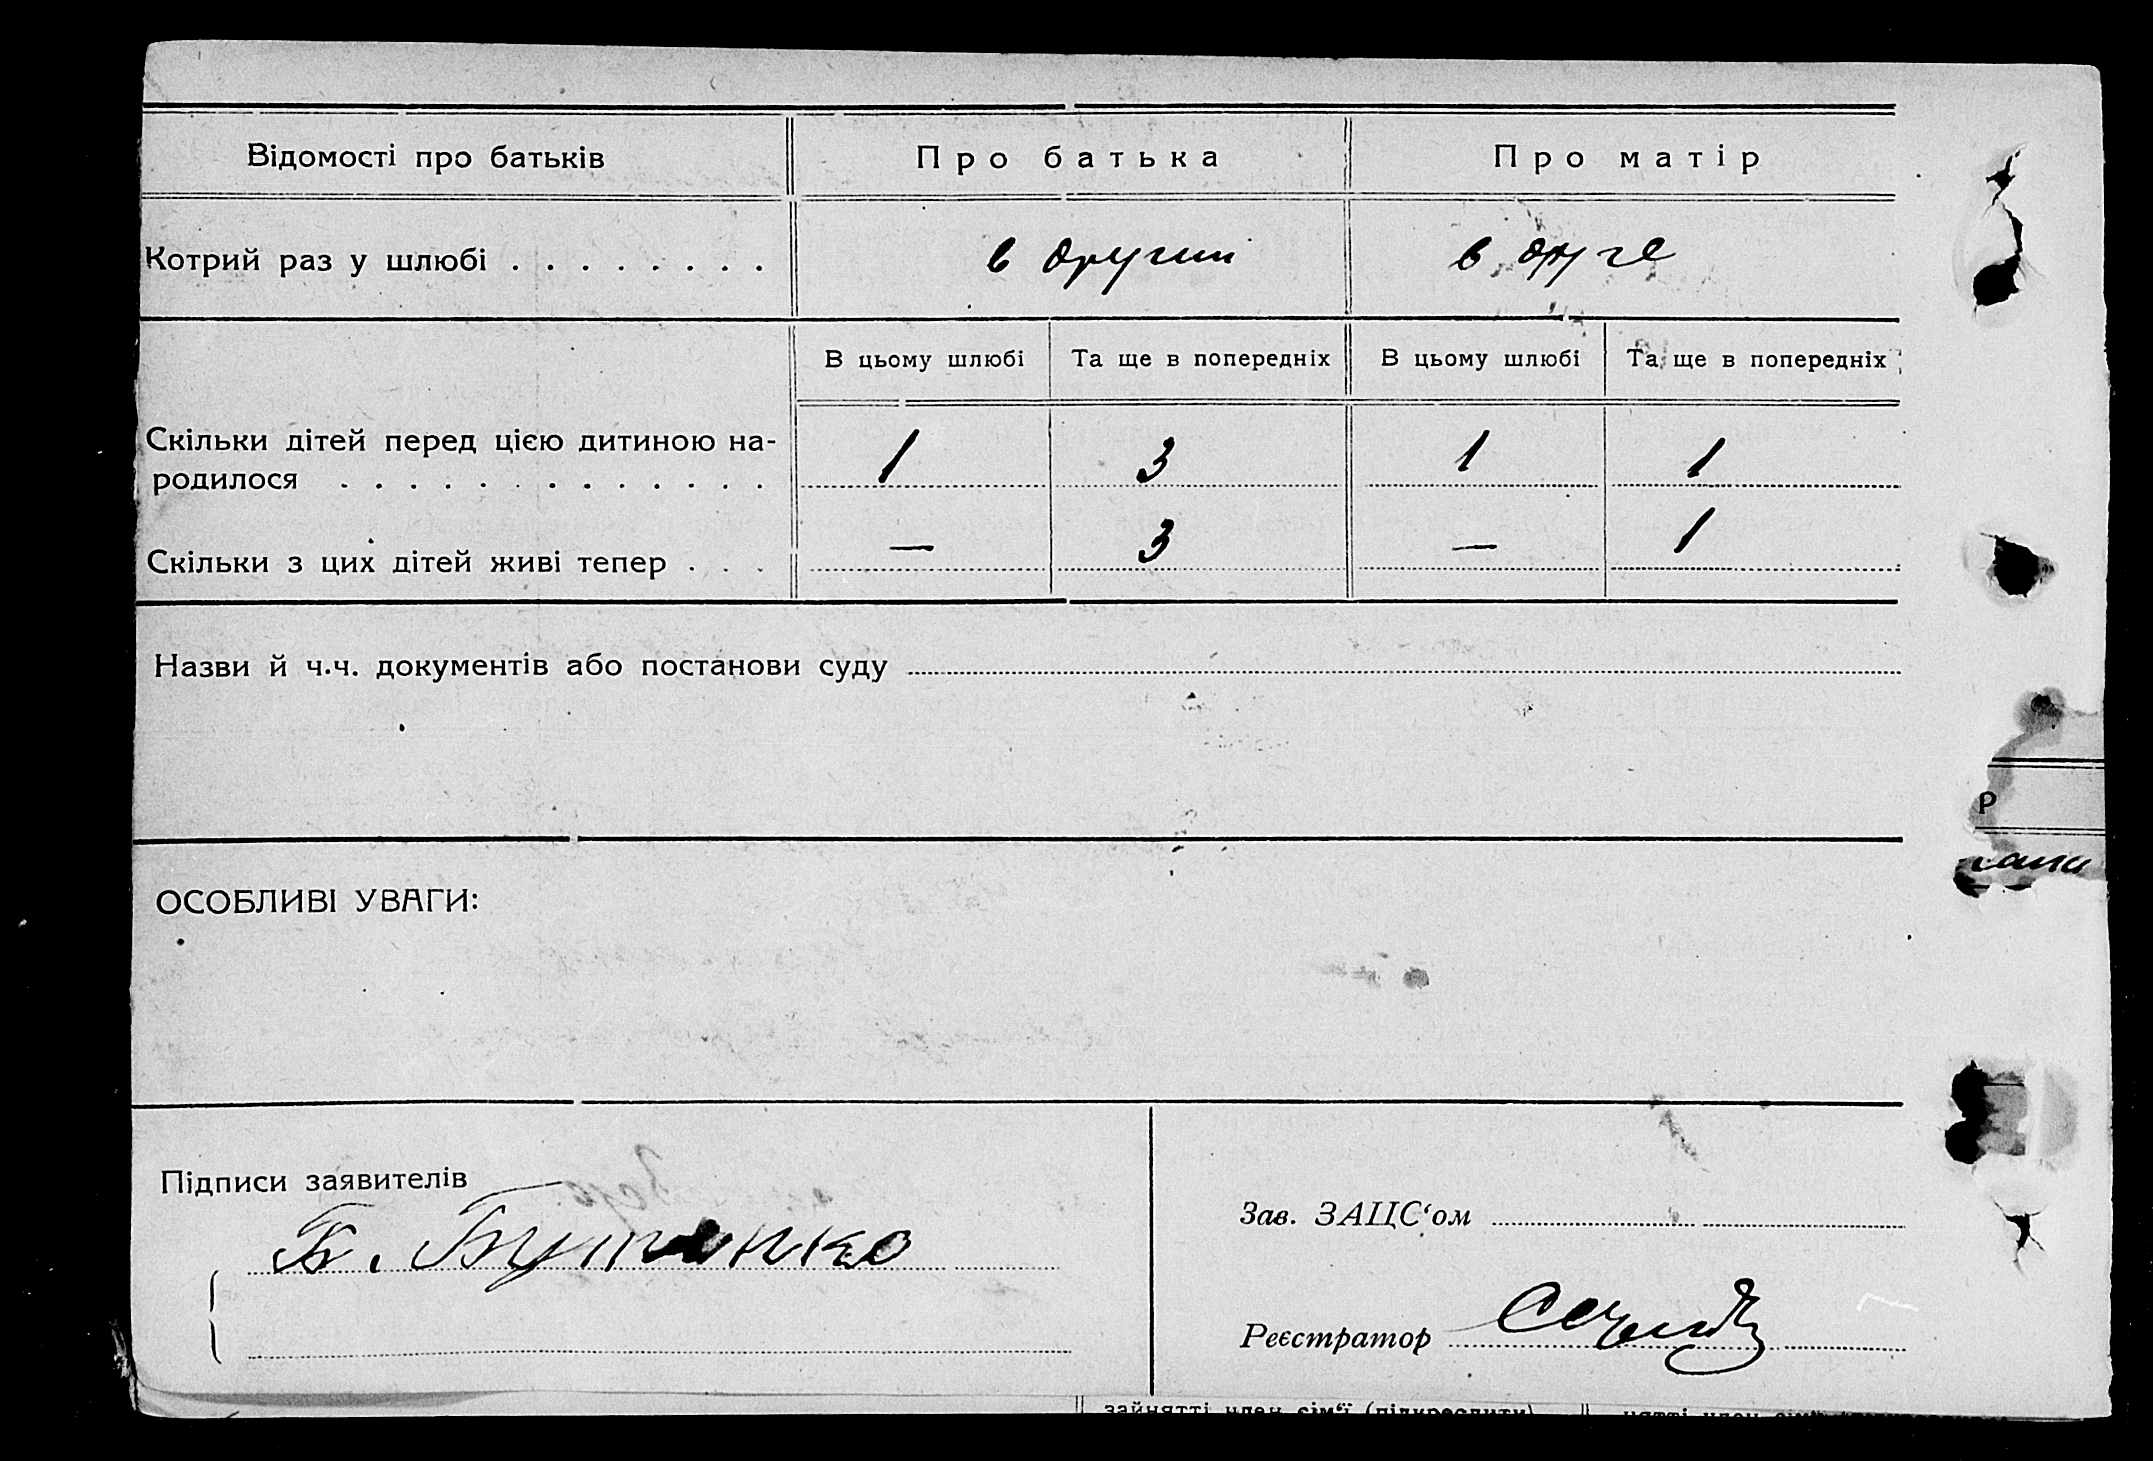 Відомості про батьків Про батька Про матір
Котрий раз у шлюбі . . . . . . . . в другий в друге
В цьому шлюбі Та ще в попередніх В цьому шлюбі Та ще в попередніх
Скільки дітей перед цією дитиною на-
родилося . . . . . . . . . . . . . 1 3 1 1
Скільки з цих дітей живі тепер . . . — 3 — 1
Назви й ч.ч. документів або постанови суду
Р
ОСОБЛИВІ УВАГИ:
Підписи заявителів
Б. Бутенко
Зав. ЗАЦС‘ом
Реєстратор
зайнятті член сім‘ї (підкреслити)